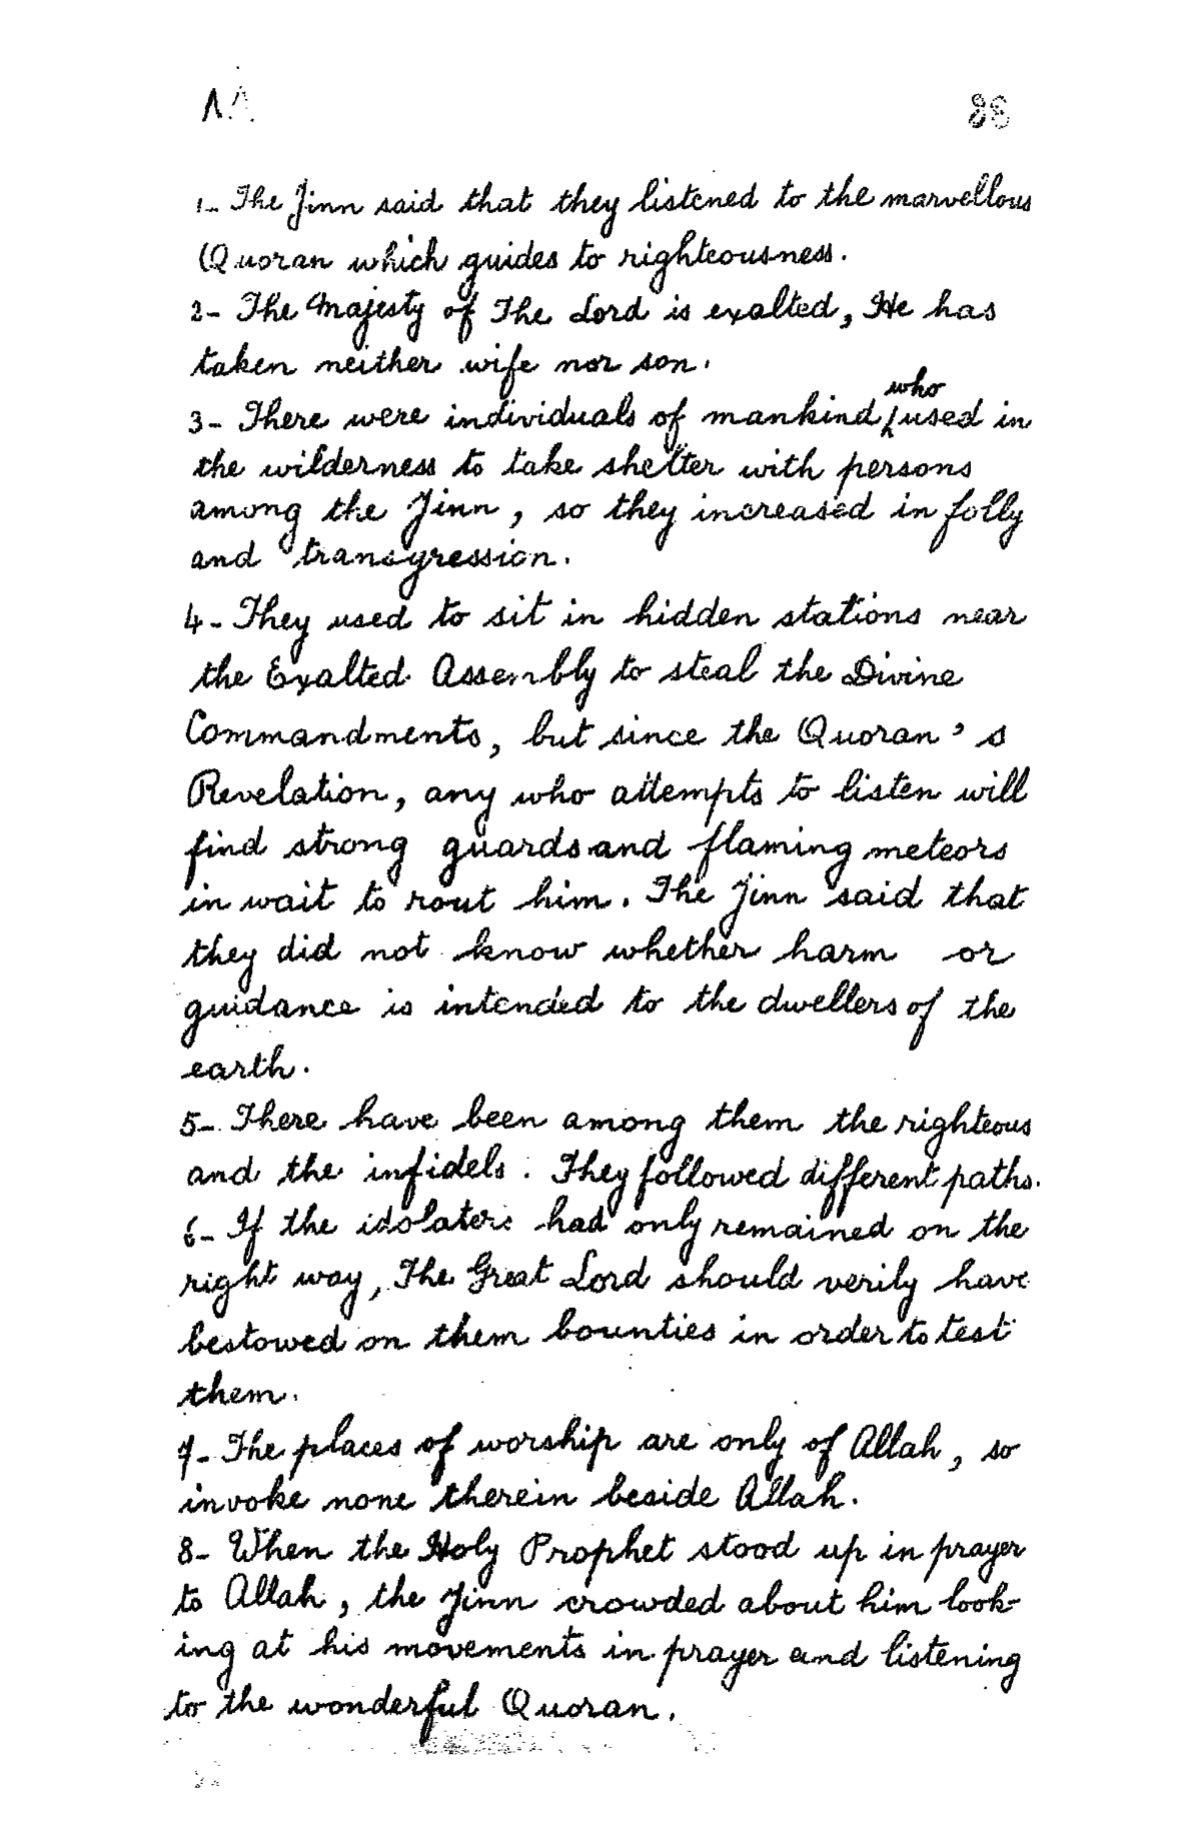 ٨٨ 88
1- The Jinn said that they listened to the marvellous
Quoran which guides to righteousness.
2- The Majesty of The Lord is exalted, He has
taken neither wife nor son.
3- There were individuals of mankind who used in
the wilderness to take shelter with persons
among the Jinn, so they increased in folly
and transgression.
4- They used to sit in hidden stations near
the Exalted Assembly to steal the Divine
Commandments, but since the Quoran's
Revelation, any who attempts to listen will
find strong guards and flaming meteors
in wait to rout him. The Jinn said that
they did not know whether harm or
guidance is intended to the dwellers of the
earth.
5- There have been among them the righteous
and the infidels. They followed different paths.
6- If the idolaters had only remained on the
right way, The Great Lord should verily have
bestowed on them bounties in order to test
them.
7- The places of worship are only of Allah, so
invoke none therein beside Allah.
8- When the Holy Prophet stood up in prayer
to Allah, the Jinn crowded about him look-
ing at his movements in prayer and listening
to the wonderful Quoran.